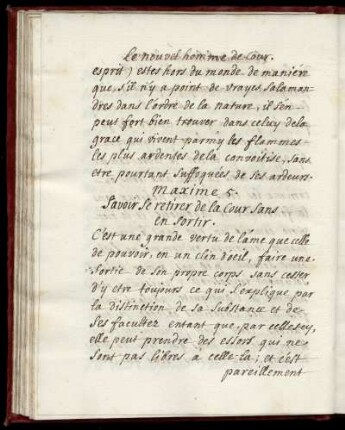 Le nouvel homme de Cour.
esprit) estes hors du monde de maniere
que, s'il n'y a point de vrayes salaman-
dres dans l'ordre de la nature, il s'en
peut fort bien trouver dans celuy de la
grace qui vivent parmy les flammes
les plus ardentes de la convoitise, sans
etre pourtant suffoquées de ses ardeurs.
Maxime 5.
Savoir se retirer de la Cour sans
en sortir.
C'est une grande vertu de l'ame que celle
de pouvoir, en un clin d'oeil, faire une
sortie de son propre corps sans cesser
d'y etre toujours ce qui s'explique par
la distinction de sa substance et de
ses facultez entant que, par celles cy,
elle peut prendre des essors qui ne
sont pas libres a celle-la; et c'est
pareillement